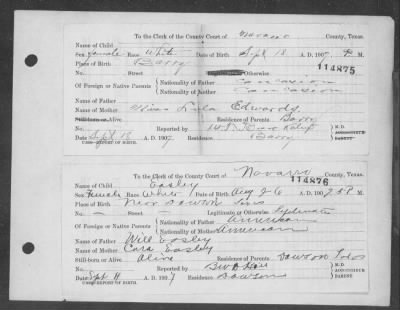 To the Clerk of the County Court of Navarro County, Texas.
Name of Child
Sex Female Race White Date of Birth Sept 18 A. D. 1907, M.
Place of Birth Barry
No. Street Otherwise 114875
Of Foreign or Native Parents { Nationality of Father Caucasion
Nationality of Mother Caucasion
Name of Father
Name of Mother Miss Lula Edwards
Still-born or Alive Residence of Parents Barry
Reported by M.D.
Date Sept 18 A. D. 1907 Residence Barry
To the Clerk of the County Court of Navarro County, Texas.
114876
Name of Child Easley
Sex Female Race White Date of Birth Aug 26 A. D. 1907 M.
Place of Birth Near Dawson
No. — Street — Legitimate or Otherwise
Of Foreign or Native Parents { Nationality of Father American
Nationality of Mother American
Name of Father Will Easley
Name of Mother Cora Easley
Still-born or Alive Alive Residence of Parents Dawson
Reported by M.D.
Date Sept A. D. 1907 Residence Dawson